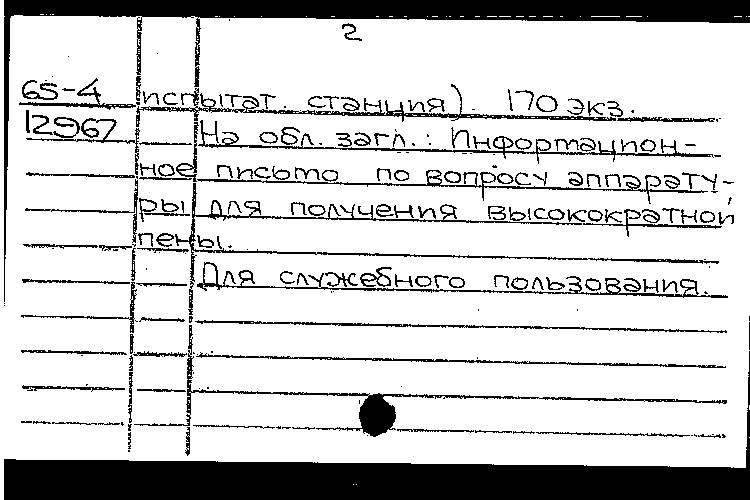 2
65-4 испытат. станция). 170 экз.
12967 На обл. загл.: Информацион-
ное письмо по вопросу аппарату-
ры для получения высокократной
пены.
Для служебного пользования.